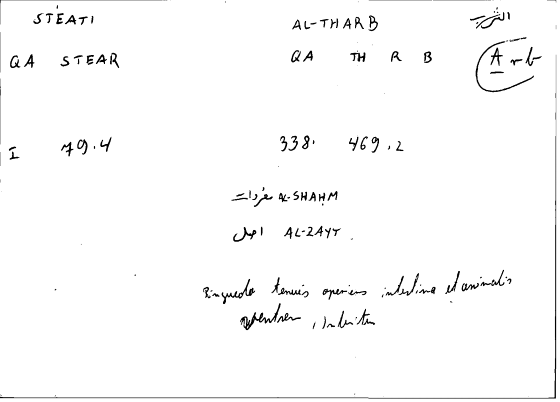 STÉATI AL-THARB الثرب
QA STEAR QA TH R B Arb
I 79.4 338. 469.2
مفردات AL-SHAHM
اصل AL-ZAYT
Pinguedo tenuis operiens intestina et animalis
ventrem